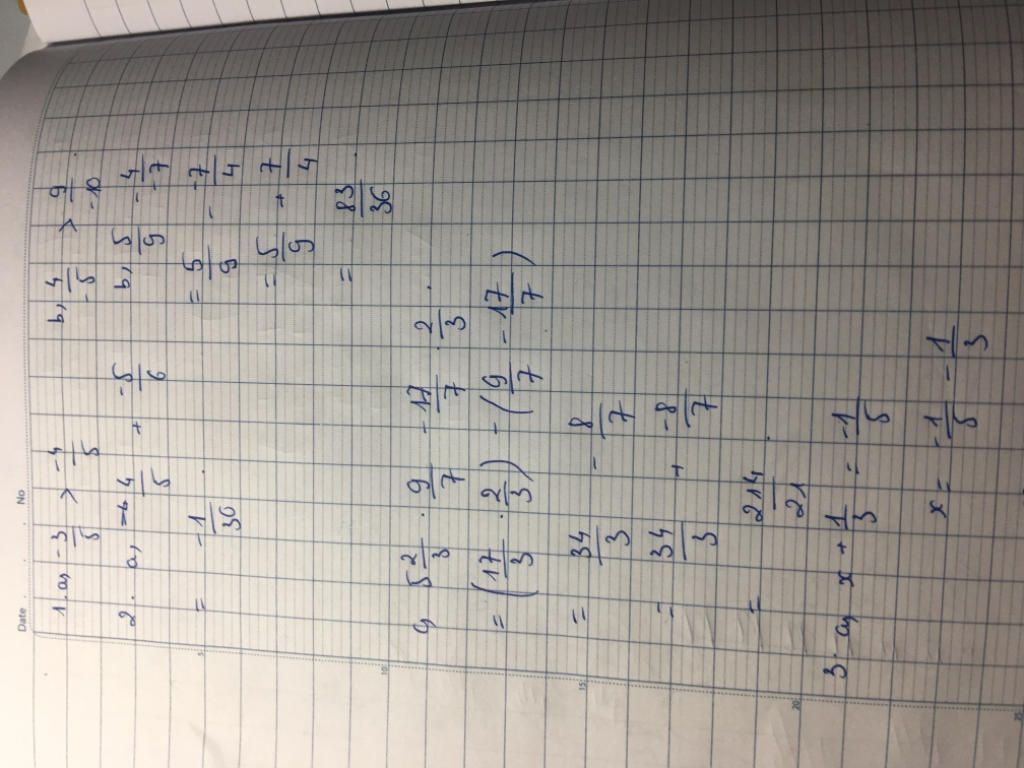 Date . No
1. a, -3/5 > -4/5 b, 4/-5 > 9/-10
2. a, 4/5 + -5/6 b, 5/9 - 4/-7
= -1/30 . = 5/9 - -7/4
= 5/9 + 7/4
= 83/36
5
10
c, 5 2/3 . 9/7 - 17/7 . 2/3 .
= (17/3 . 2/3) - (9/7 - 17/7)
= 34/3 - 8/7
15
= 34/3 + -8/7
= 214/21 .
20
3. a, x + 1/3 = -1/5
x = -1/5 - 1/3
25